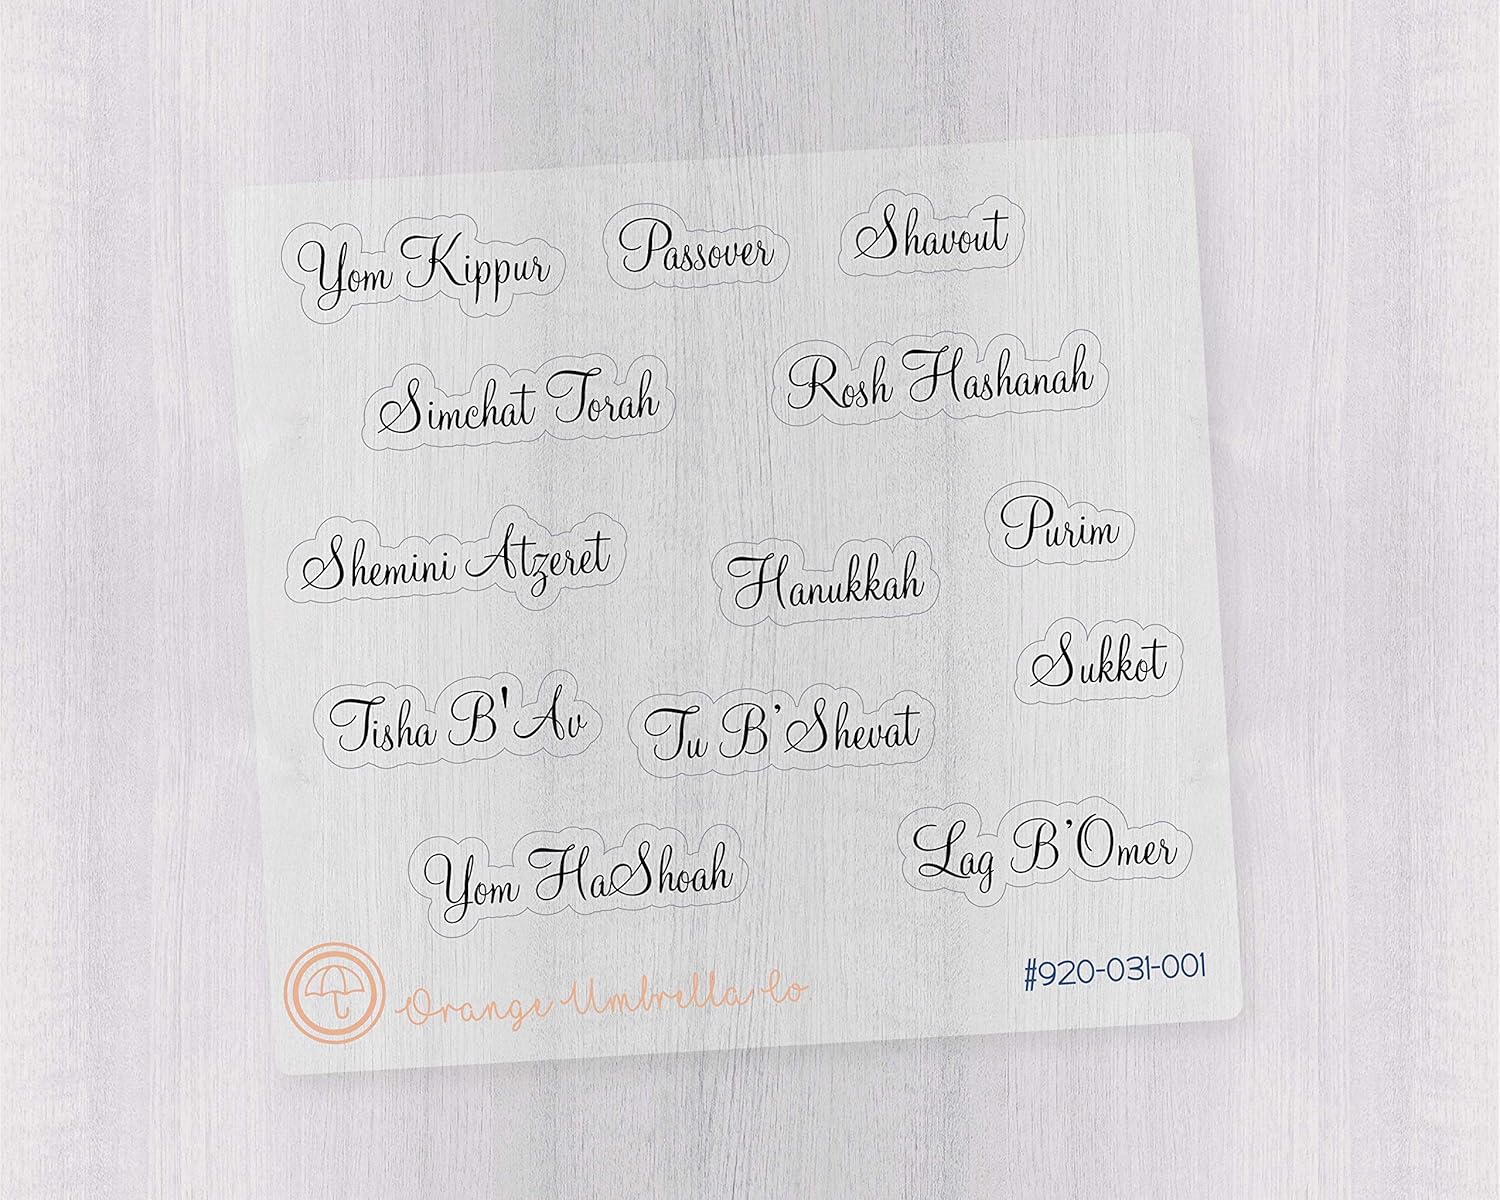 Yom Kippur
Passover
Shavout
Simchat Torah
Rosh Hashanah
Shemini Atzeret
Hanukkah
Purim
Sukkot
Tisha B'Av
Tu B’Shevat
Yom HaShoah
Lag B’Omer
Orange Umbrella Co
#920-031-001